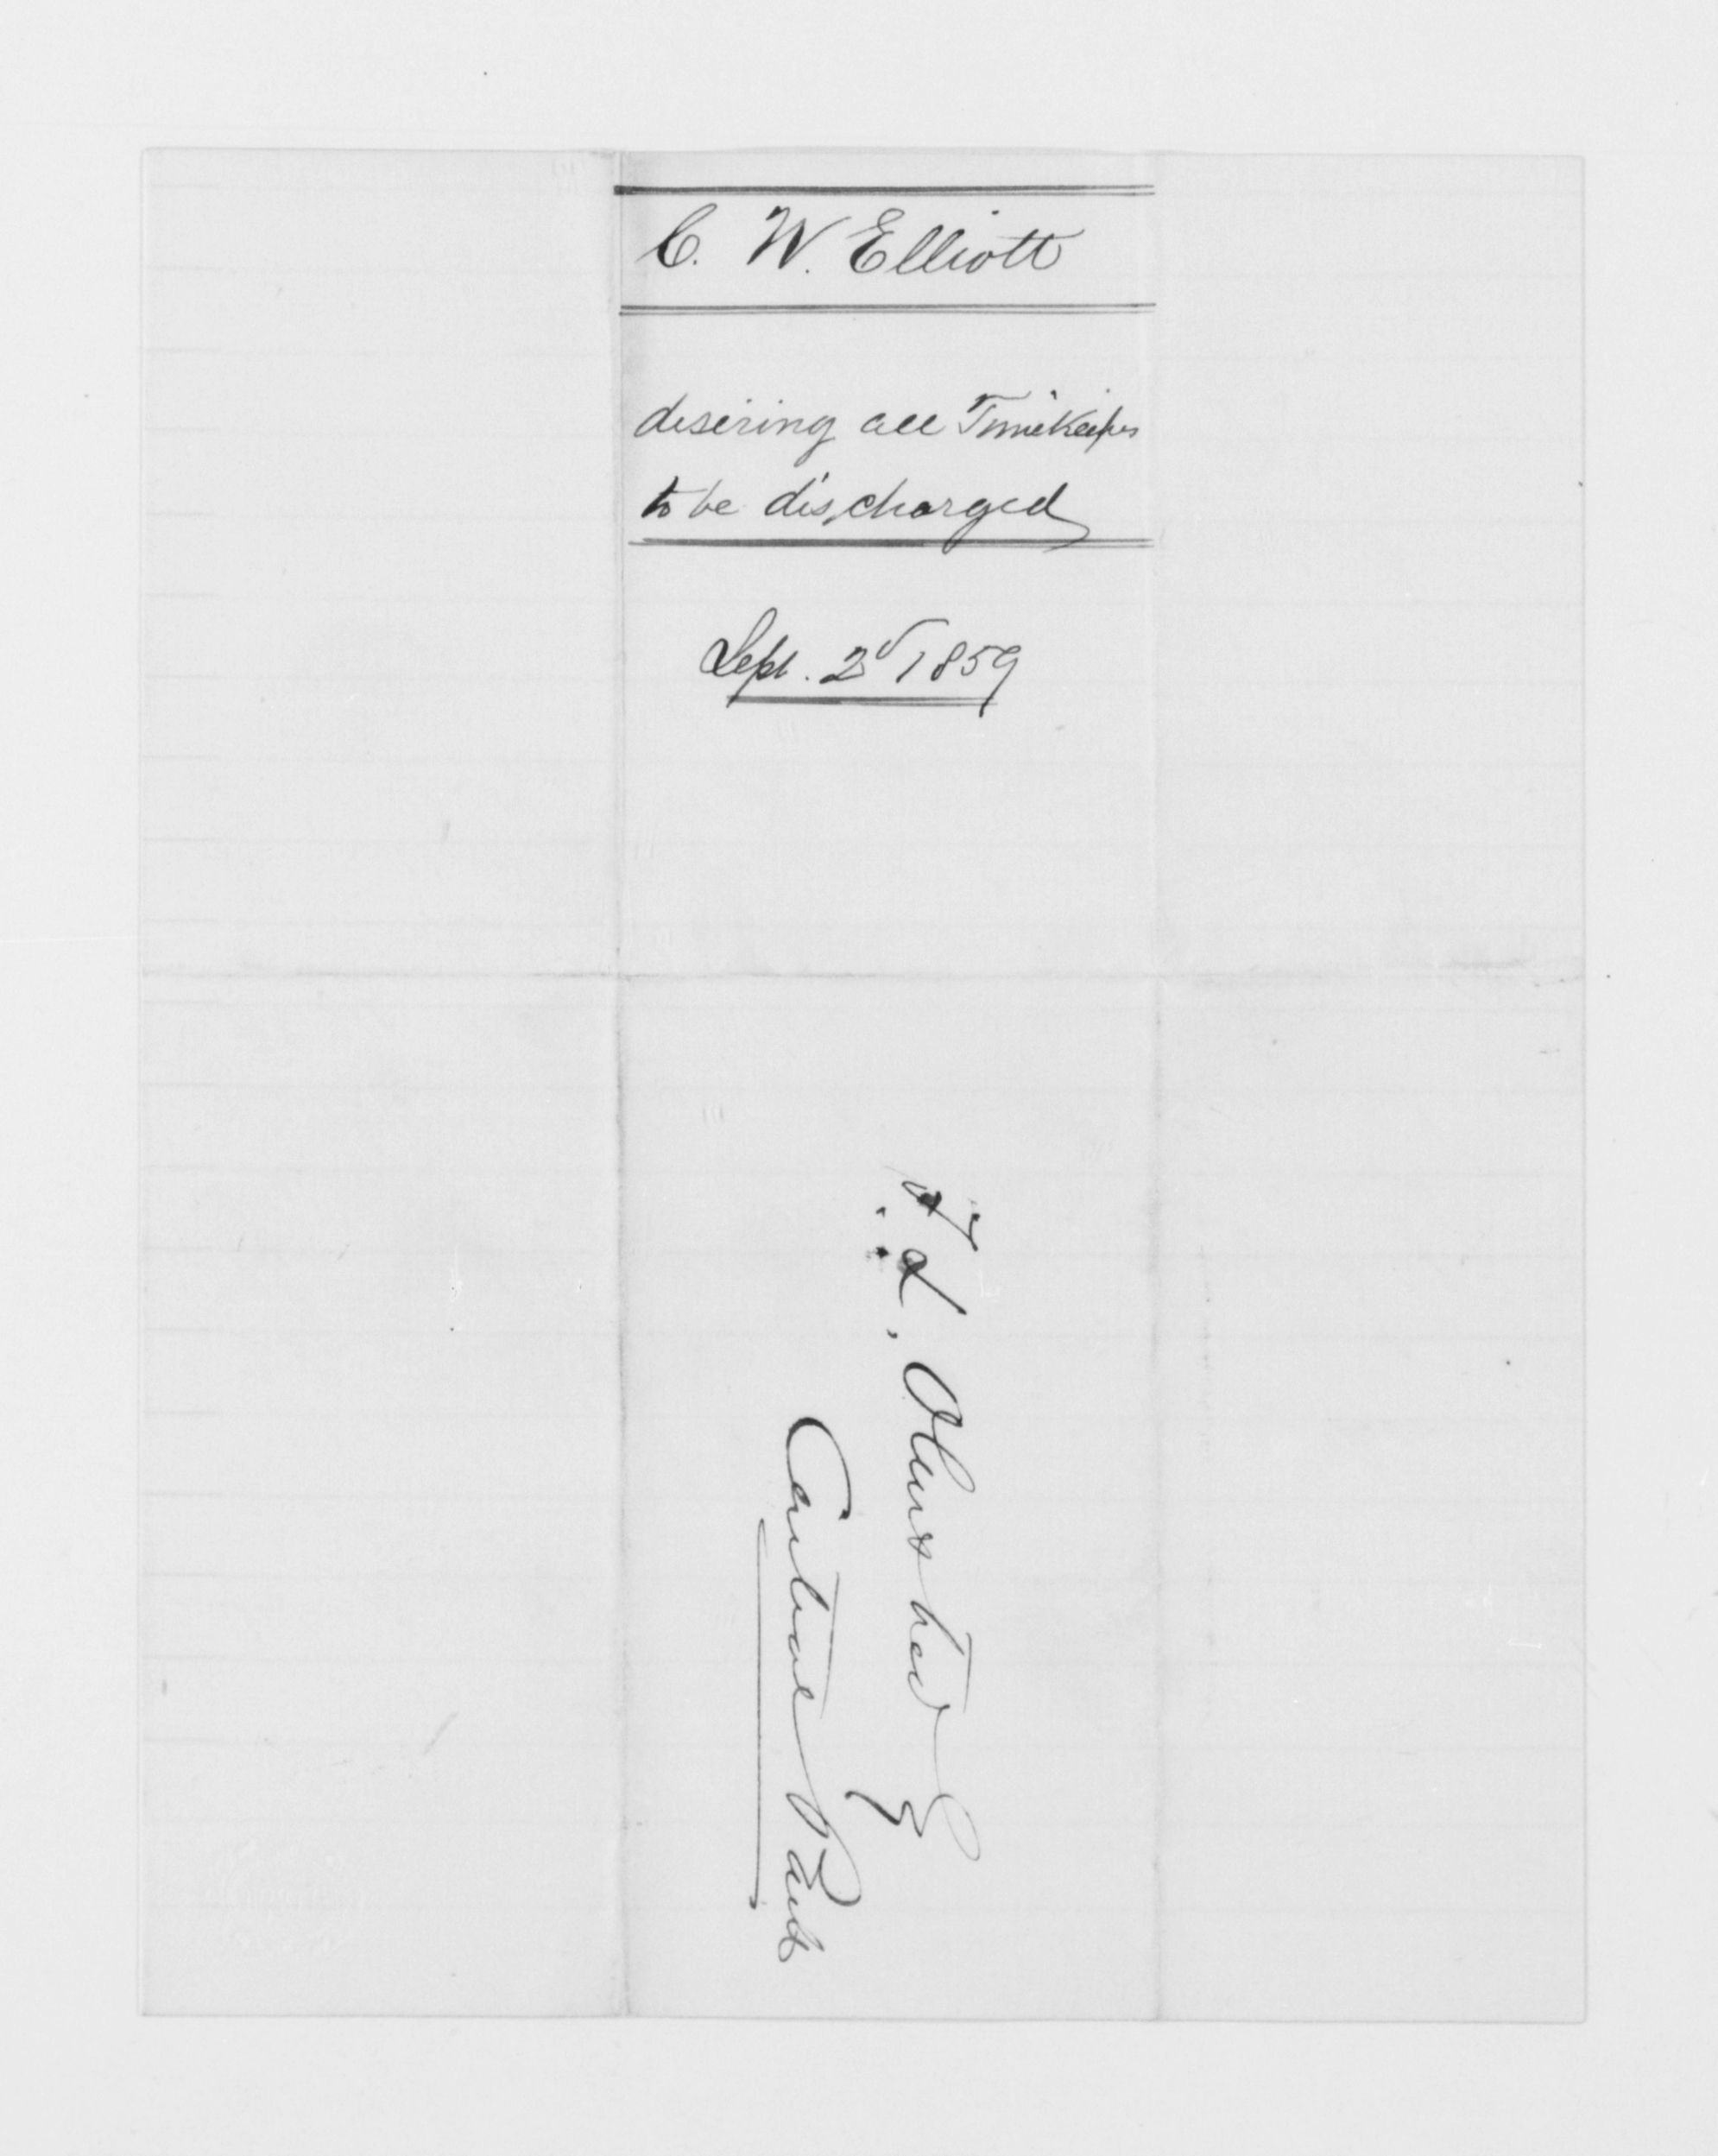 C. W. Elliott
desiring all Timekeepers
to be discharged
Sept. 2d 1859
F. L. Olmsted
Central Park